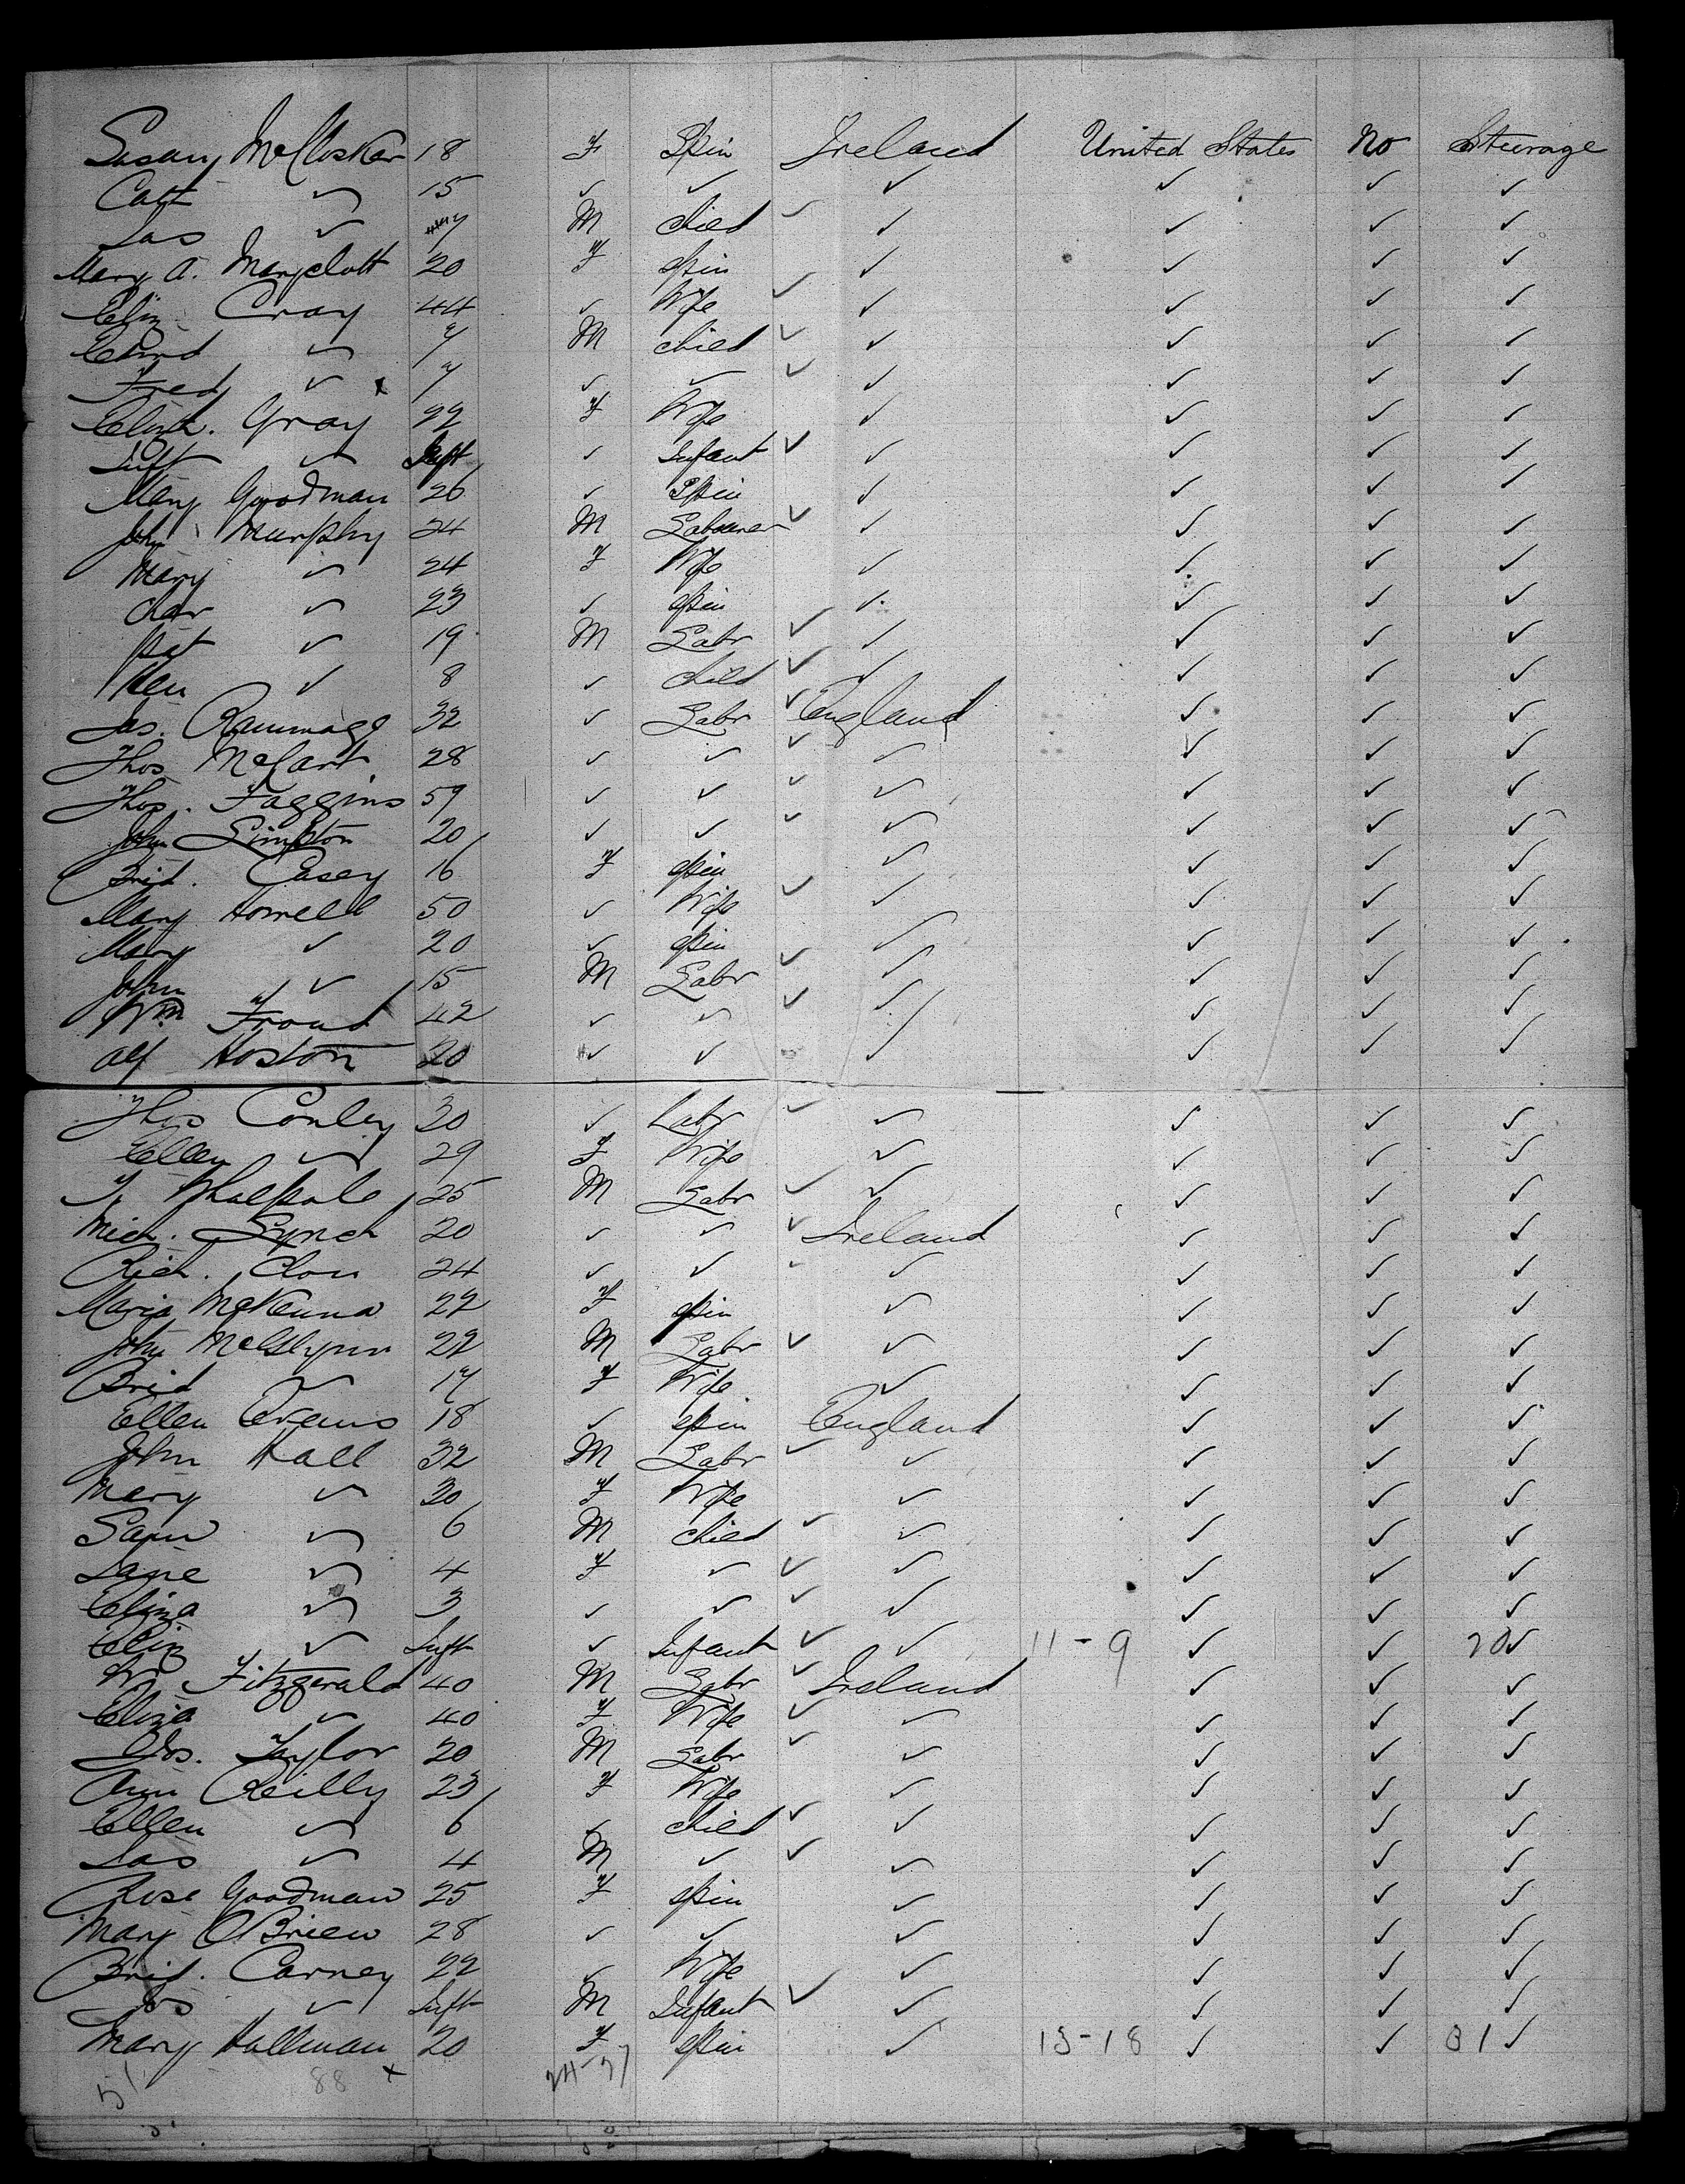 Susan McClosker 18 F Spin Ireland United States No Steerage
Cath ✓ 15 ✓ ✓ ✓ ✓ ✓ ✓
Jas ✓ 7 M child ✓ ✓ ✓ ✓ ✓
Mary A. 20 F spin ✓ ✓ ✓ ✓
Eliz Cray 44 ✓ Wife ✓ ✓ ✓ ✓ ✓
Edmd ✓ 7 M child ✓ ✓ ✓ ✓ ✓
Fred ✓ x 7 ✓ ✓ ✓ ✓ ✓ ✓ ✓
Elizth. Gray 22 F Wife ✓ ✓ ✓ ✓
Inft ✓ Inft ✓ Infant ✓ ✓ ✓ ✓ ✓
Mary Goodman 26 ✓ Spin ✓ ✓ ✓ ✓
John Murphy 24 M Labourer ✓ ✓ ✓ ✓ ✓
Mary ✓ 24 F Wife ✓ ✓ ✓ ✓
Char ✓ 23 ✓ spin ✓ ✓ ✓ ✓
Pat ✓ 19 M Labr ✓ ✓ ✓ ✓ ✓
✓ 8 ✓ child ✓ ✓ ✓ ✓ ✓
Jas. Rammage 32 ✓ Labr ✓ England ✓ ✓ ✓
Thos McCart 28 ✓ ✓ ✓ ✓ ✓ ✓ ✓
Thos. Faggins 59 ✓ ✓ ✓ ✓ ✓ ✓ ✓
John Simpton 20 ✓ ✓ ✓ ✓ ✓ ✓ ✓
Brid. Casey 16 F spin ✓ ✓ ✓ ✓
Mary Howell 50 ✓ Wife ✓ ✓ ✓ ✓ ✓
Mary ✓ 20 ✓ spin ✓ ✓ ✓ ✓
John ✓ 15 M Labr ✓ ✓ ✓ ✓ ✓
Wm Froud 42 ✓ ✓ ✓ ✓ ✓ ✓ ✓
Alf Hoston 20 ✓ ✓ ✓ ✓ ✓ ✓
Thos Conley 30 ✓ Labr ✓ ✓ ✓ ✓ ✓
Ellen ✓ 29 F Wife ✓ ✓ ✓ ✓
T. Whalpole 25 M Labr ✓ ✓ ✓ ✓ ✓
Mich. Lynch 20 ✓ ✓ ✓ Ireland ✓ ✓ ✓
Rich. Clon 24 ✓ ✓ ✓ ✓ ✓ ✓ ✓
Maria McKenna 22 F spin ✓ ✓ ✓ ✓
John McGlynn 22 M Labr ✓ ✓ ✓ ✓ ✓
Brid ✓ 17 F Wife ✓ ✓ ✓ ✓
Ellen Evans 18 ✓ spin England ✓ ✓ ✓
John Hall 32 M Labr ✓ ✓ ✓ ✓ ✓
Mary ✓ 30 F Wife ✓ ✓ ✓ ✓
Saml ✓ 6 M child ✓ ✓ ✓ ✓ ✓
Jane ✓ 4 F ✓ ✓ ✓ ✓ ✓ ✓
Eliza ✓ 3 ✓ ✓ ✓ ✓ ✓ ✓ ✓
Eliz ✓ Inft ✓ Infant ✓ ✓ 11-9 ✓ ✓ 20 ✓
Wm Fitzgerald 40 M Labr ✓ Ireland ✓ ✓ ✓
Eliza ✓ 40 F Wife ✓ ✓ ✓ ✓ ✓
Jos. Taylor 20 M Labr ✓ ✓ ✓ ✓ ✓
Ann Reilly 23 F Wife ✓ ✓ ✓ ✓
Ellen ✓ 6 ✓ child ✓ ✓ ✓ ✓ ✓
Jas ✓ 4 M ✓ ✓ ✓ ✓ ✓ ✓
Rose Goodman 25 F spin ✓ ✓ ✓ ✓
Mary OBrien 28 ✓ ✓ ✓ ✓ ✓ ✓
Brid. Carney 22 ✓ Wife ✓ ✓ ✓ ✓
Jos ✓ Inft M Infant ✓ ✓ ✓ ✓ ✓
Mary Hallman 20 F spin ✓ 13-18 ✓ ✓ 31 ✓
51 88 x 24-27